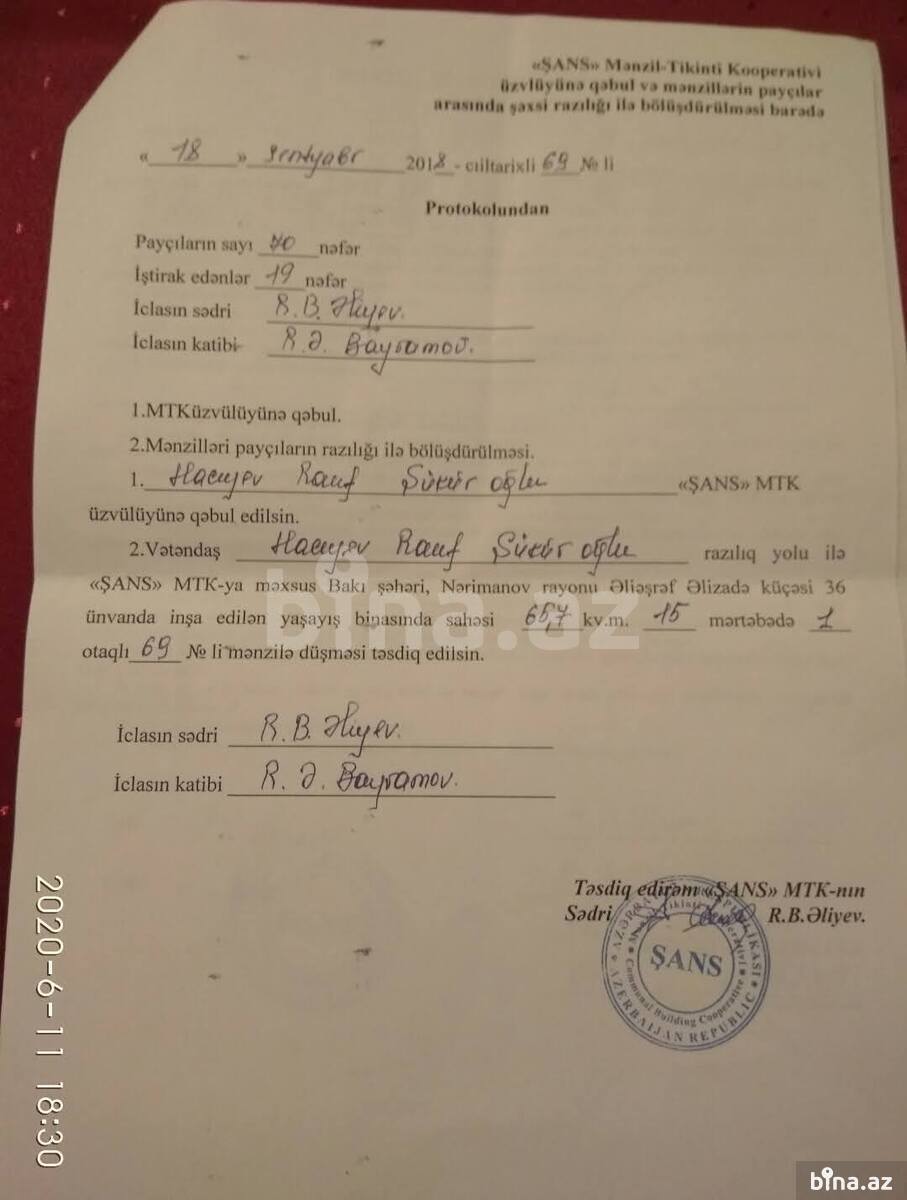 «ŞANS» Mənzil-Tikinti Kooperativi
üzvlüyünə qəbul və mənzillərin payçılar
arasında şəxsi razılığı ilə bölüşdürülməsi barədə
« 18 » sentyabr 2018 - ciiltarixli 69 № li
Protokolundan
Payçıların sayı 40 nəfər
İştirak edənlər 19 nəfər
İclasın sədri R.B. Əliyev.
İclasın katibi R.Ə. Bayramov.
1.MTKüzvülüyünə qəbul.
2.Mənzilləri payçıların razılığı ilə bölüşdürülməsi.
1. Hacıyev Rauf Şükür oğlu «ŞANS» MTK
üzvülüyünə qəbul edilsin.
2.Vətəndaş Hacıyev Rauf Şükür oğlu razılıq yolu ilə
«ŞANS» MTK-ya məxsus Bakı şəhəri, Nərimanov rayonu Əliəşrəf Əlizadə küçəsi 36
ünvanda inşa edilən yaşayış binasında sahəsi 65,7 kv.m. 15 mərtəbədə 1
otaqlı 69 № li mənzilə düşməsi təsdiq edilsin.
bina.az
İclasın sədri R.B. Əliyev.
İclasın katibi R. Ə. Bayramov.
Təsdiq edirəm «ŞANS» MTK-nın
Sədri R.B.Əliyev.
ŞANS
Communal Building Cooperative
AZERBAIJAN REPUBLIC
2020-6-11 18:30
bina.az